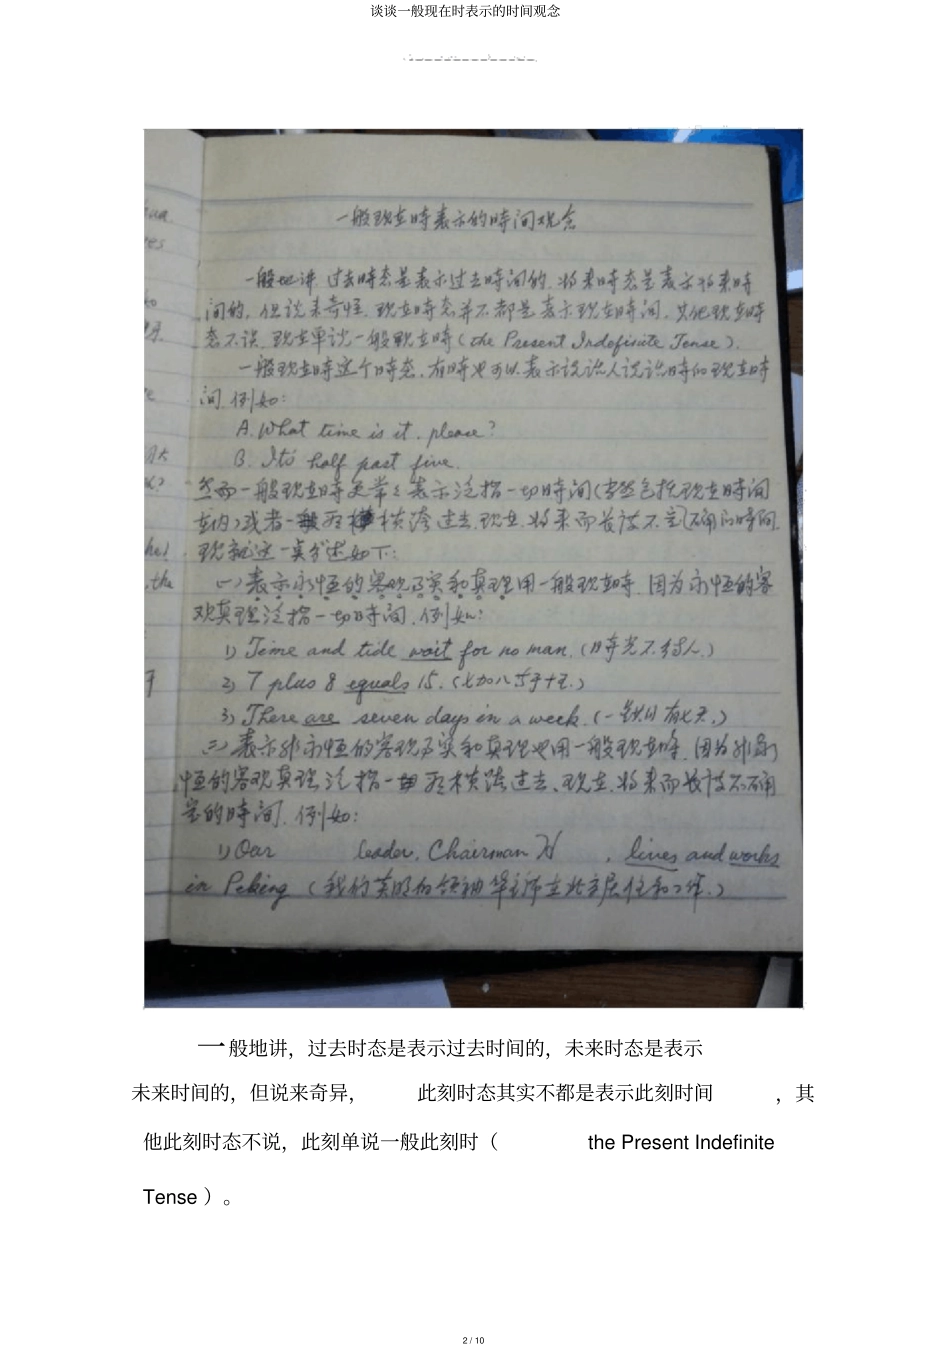 谈谈一般现在时表示的时间观念
一般现在時表示的時间观念
一般地讲,过去時态是表示过去時间的,将来時态是表示将来時
间的,但说来奇怪,现在時态并不都是表示现在時间,其他现在時
态不谈,现在单说一般现在時(the Present Indefinite Tense).
一般现在時这个時态,有時也可以表示说话人说话時的现在時
间,例如:
A. What time is it, please?
B. It's half past five.
然而一般现在時更常々表示泛指一切時间(当然包括现在時间
在内)或者一段横跨过去,现在,将来而长度不定
现就这一点分述如下:
(一)表示永恒的客观事实和真理用一般现在時,因为永恒的客
观真理泛指一切時间,例如:
1) Time and tide wait for no man. (時光不待人.)
2) 7 plus 8 equals 15. (七加八等于十五.)
3) There are seven days in a week. (一星期有七天.)
表示非永恒的客观事实和真理也用一般现在時,因为非永
恒的客观真理泛指一段横跨过去、现在,将来而长度不确
定的時间,例如:
1) Our leader, Chairman H , lives and works
in Peking (我们英明的领袖华主席在北京居住和工作.)
ua.
res
the
一般地讲，过去时态是表示过去时间的，未来时态是表示
未来时间的，但说来奇异， 此刻时态其实不都是表示此刻时间 ，其
他此刻时态不说，此刻单说一般此刻时（ the Present Indefinite
Tense ）。
2 / 10